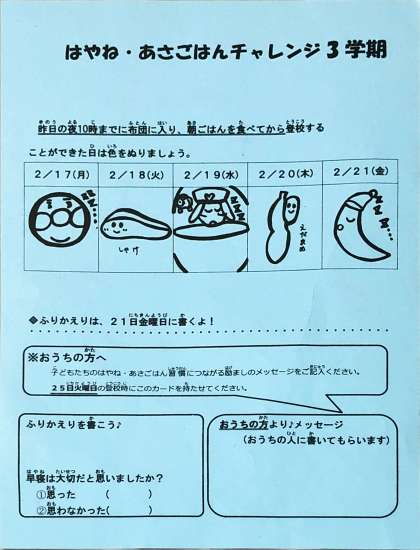 はやね・あさごはんチャレンジ 3 学期
昨日の夜10時までに布団に入り、朝ごはんを食べてから登校する
ことができた日は色をぬりましょう。
2/17(月) 2/18(火) 2/19(水) 2/20(木) 2/21(金)
しゃけ
えだまめ
◆ふりかえりは、21日金曜日に書くよ!
※おうちの方へ
子どもたちのはやね・あさごはん習慣につながる励ましのメッセージをご記入ください。
25日火曜日の登校時にこのカードを持たせてください。
ふりかえりを書こう♪
早寝は大切だと思いましたか?
①思った ( )
②思わなかった( )
おうちの方より♪メッセージ
(おうちの人に書いてもらいます)